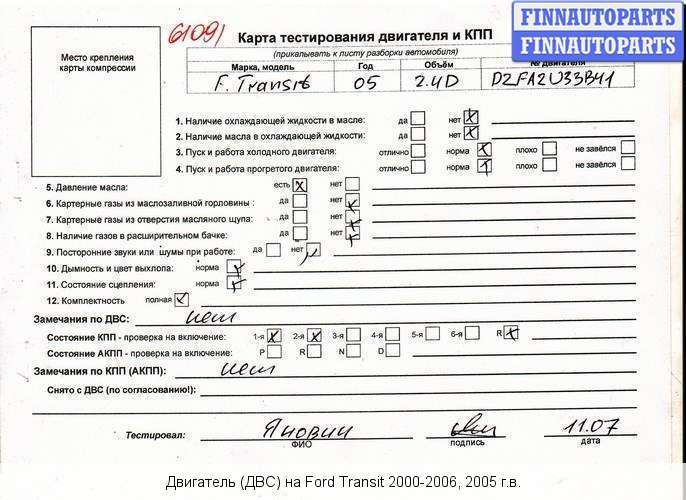 61091
Карта тестирования двигателя и КПП
FINNAUTOPARTS
FINNAUTOPARTS
(прикалывать к листу разборки автомобиля)
Место крепления
карты компрессии
Марка, модель Год Объём № двигателя
F. Transit 05 2.4D D2FA2U33B41
1. Наличие охлаждающей жидкости в масле: да нет X
2. Наличие масла в охлаждающей жидкости: да нет X
3. Пуск и работа холодного двигателя: отлично норма X плохо не завёлся
4. Пуск и работа прогретого двигателя: отлично норма X плохо не завёлся
5. Давление масла: есть X нет
6. Картерные газы из маслозаливной горловины : да нет X
7. Картерные газы из отверстия масляного щупа: да нет X
8. Наличие газов в расширительном бачке: да нет X
9. Посторонние звуки или шумы при работе: да нет
10. Дымность и цвет выхлопа: норма
11. Состояние сцепления: норма
12. Комплектность полная
Замечания по ДВС: нет
Состояние КПП - проверка на включение: 1-я X 2-я X 3-я 4-я 5-я 6-я R X
Состояние АКПП - проверка на включение: P R N D
Замечания по КПП (АКПП): нет
Снято с ДВС (по согласованию!):
Тестировал: Янович 11.07
ФИО подпись дата
Двигатель (ДВС) на Ford Transit 2000-2006, 2005 г.в.